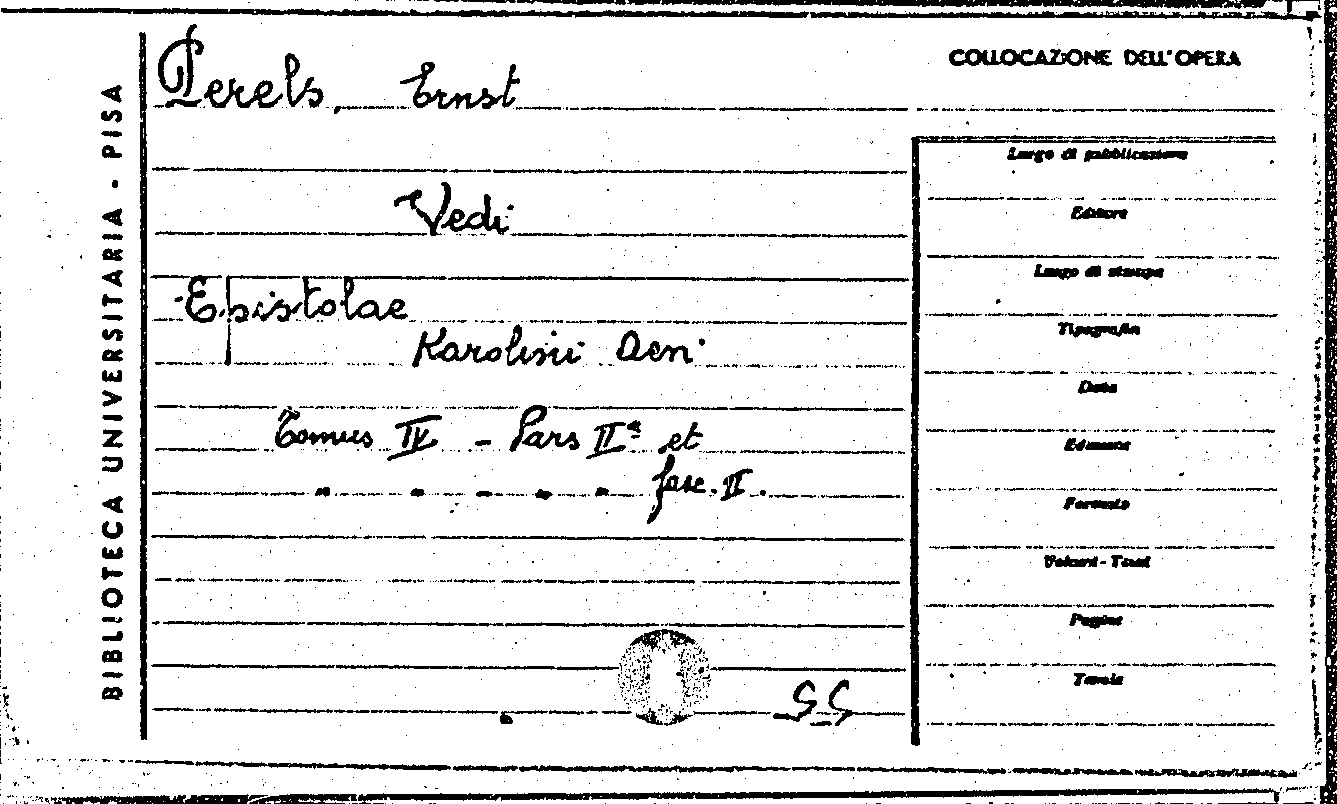 BIBLIOTECA UNIVERSITARIA - PISA
Perels, Ernst
Vedi
Epistolae
Karolini Aevi
Tomus IV - Pars IIª et
" " " " " fasc. II.
SS
COLLOCAZIONE DELL'OPERA
Luogo di pubblicazione
Editore
Luogo di stampa
Tipografia
Data
Edizione
Formato
Volumi - Tomi
Pagine
Tavole